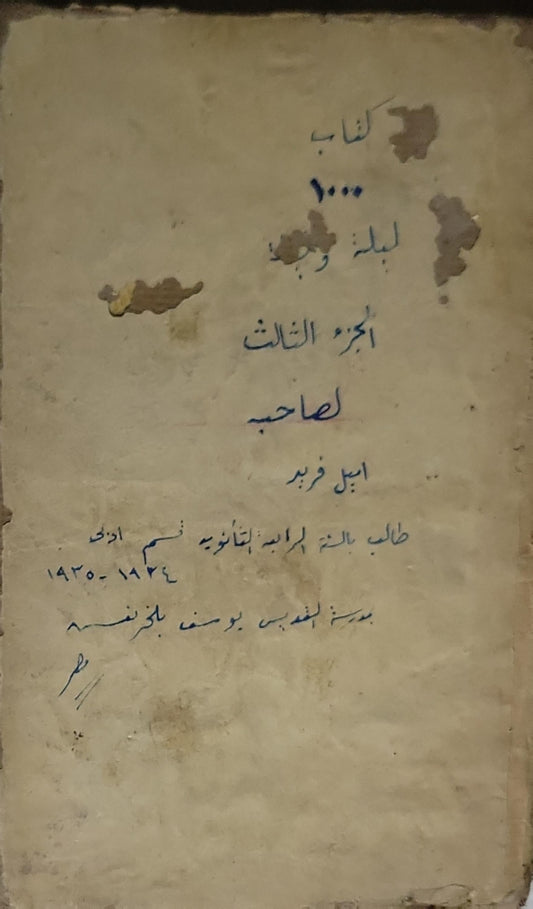 كتاب
١٠٠٠
ليلة
الجزء الثالث
لصاحبه
اميل فريد
طالب بالسنة الرابعة الثانويه قسم ادبى
١٩٣٤ - ١٩٣٥
بمدرسة القديس يوسف بالخرنفش
مصر